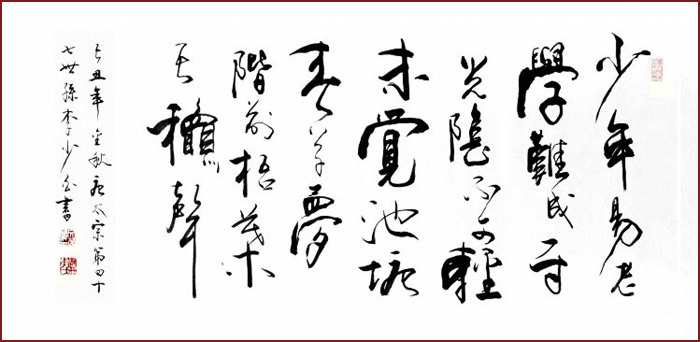 少年易老
學難成一寸
光陰不可輕
未覺池塘
春草夢
階前梧葉
已龝聲
己丑年秋唐太宗第四十
七世孫李少書